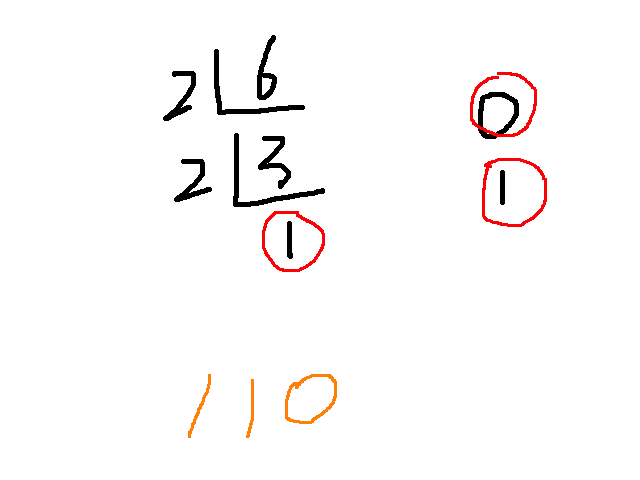 2 6 0
2 3 1
1
110